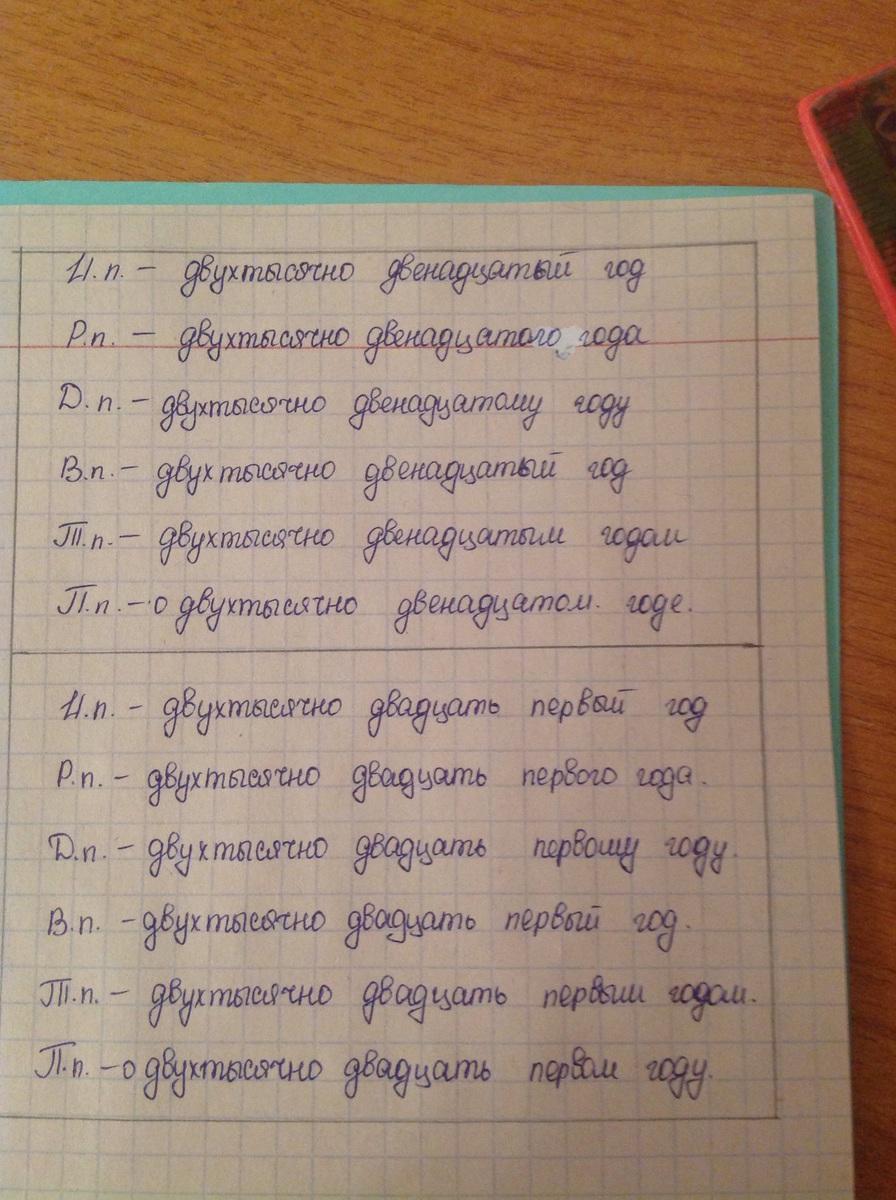 И.п. – двухтысячно двенадцатый год
Р.п. – двухтысячно двенадцатого года
Д.п. – двухтысячно двенадцатому году
В.п. – двухтысячно двенадцатый год
Т.п. – двухтысячно двенадцатым годом
П.п. – о двухтысячно двенадцатом. годе.
И.п. – двухтысячно двадцать первый год
Р.п. – двухтысячно двадцать первого года.
Д.п. – двухтысячно двадцать первому году.
В.п. – двухтысячно двадцать первый год.
Т.п. – двухтысячно двадцать первым годом.
П.п. – о двухтысячно двадцать первом году.